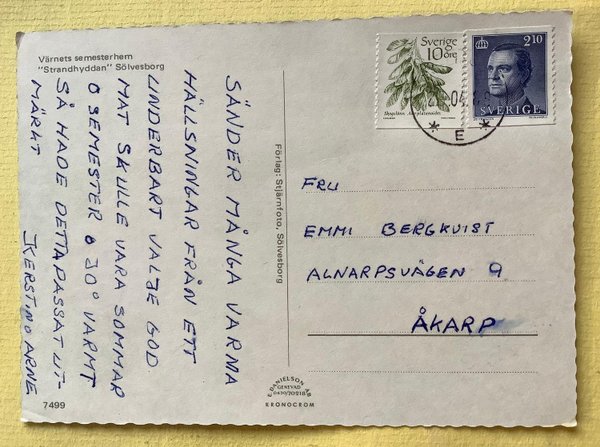 Värnets semesterhem
"Strandhyddan" Sölvesborg
SÄNDER MÅNGA VARNA
HÄLLSNINGAR FRÅN ETT
UNDERBART VALJE GOD
MAT SKULLE VARA SOMMAR
O SEMESTER O 30° VARMT
SÅ HADE DETTA PASSAT UT-
MÄRKT
KERSTIN O ARNE
7499
Förlag: Stjärnfoto, Sölvesborg
Sverige
10 öre
2.10
SVERIGE
04
* E *
FRU
EMMI BERGKVIST
ALNARPSVÄGEN 9
ÅKARP
E. DANIELSON AB
GENEVAD
KRONOCROM